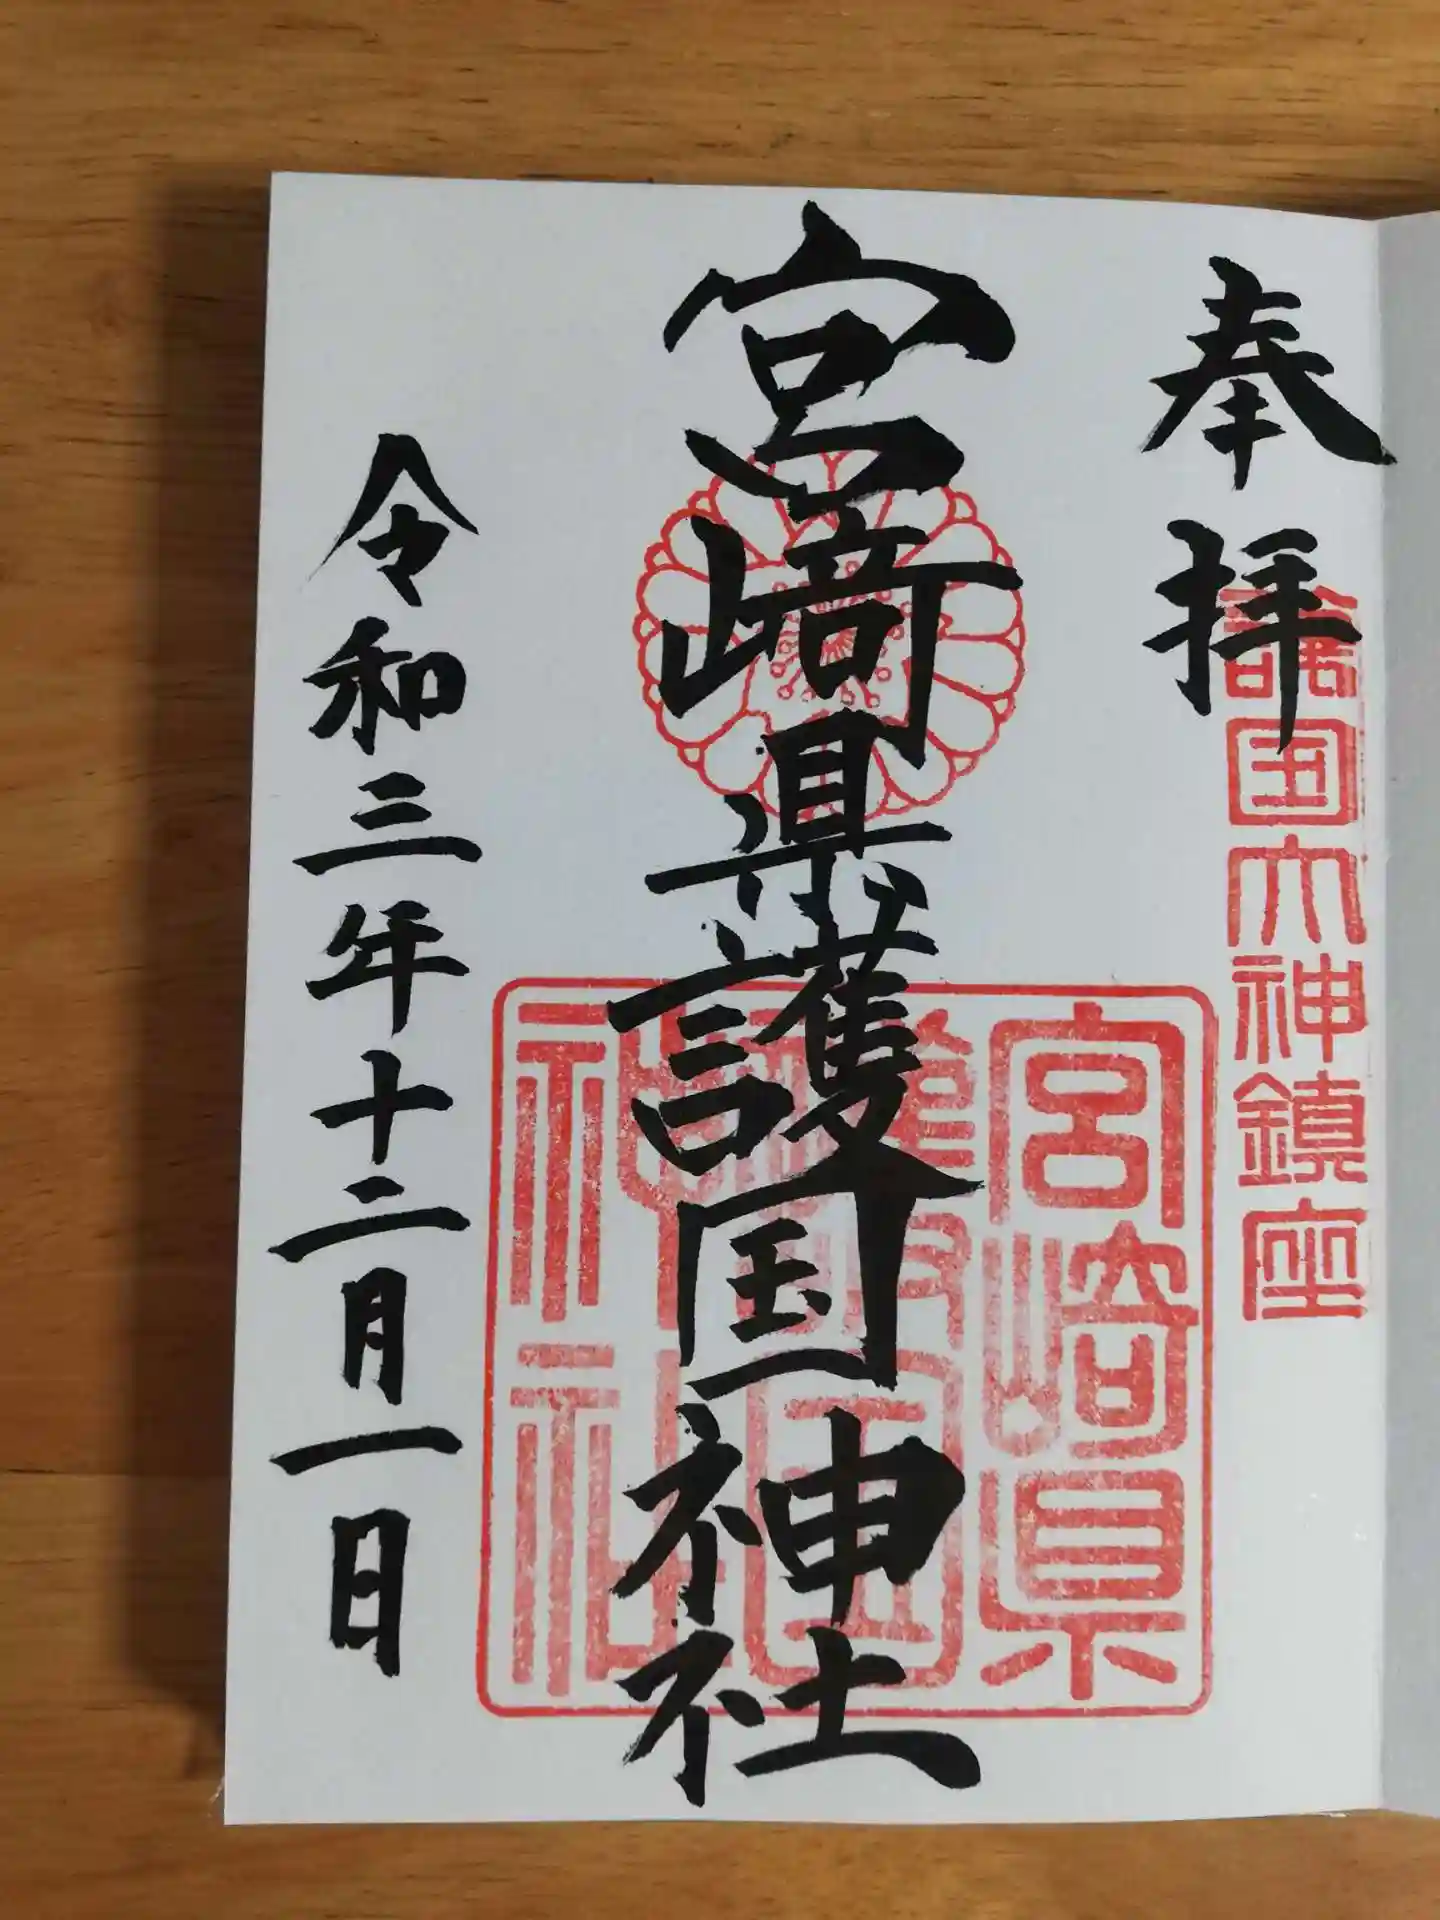 奉拝
護国大神鎮座
宮﨑県護国神社
宮崎県
護国
神社
令和三年十二月一日